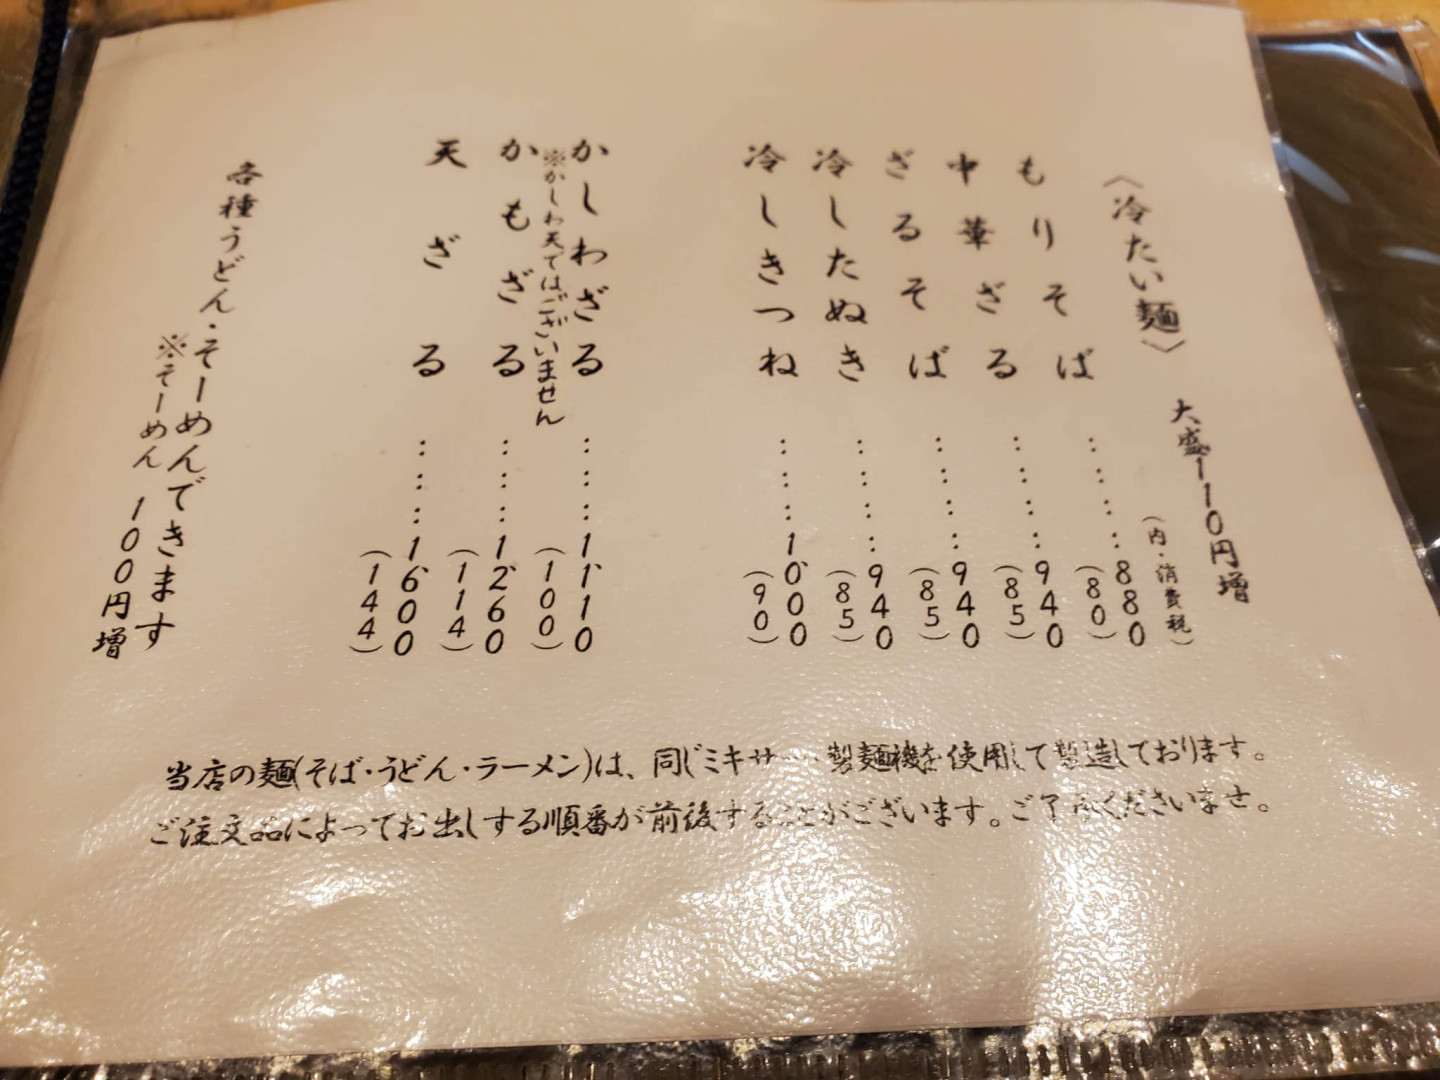 〈冷たい麺〉 大盛110円増
(内・消費税)
もりそば………880
(80)
中華ざる………940
(85)
ざるそば………940
(85)
冷したぬき………940
(85)
冷しきつね………1,000
(90)
かしわざる………1,110
(100)
※かしわ天ではございません
かもざる………1,260
(114)
天ざる………1,600
(144)
各種うどん・そーめんできます
※そーめん 100円増
当店の麺(そば・うどん・ラーメン)は、同じミキサー・製麺機を使用して製造しております。
ご注文品によってお出しする順番が前後することがございます。ご了承くださいませ。